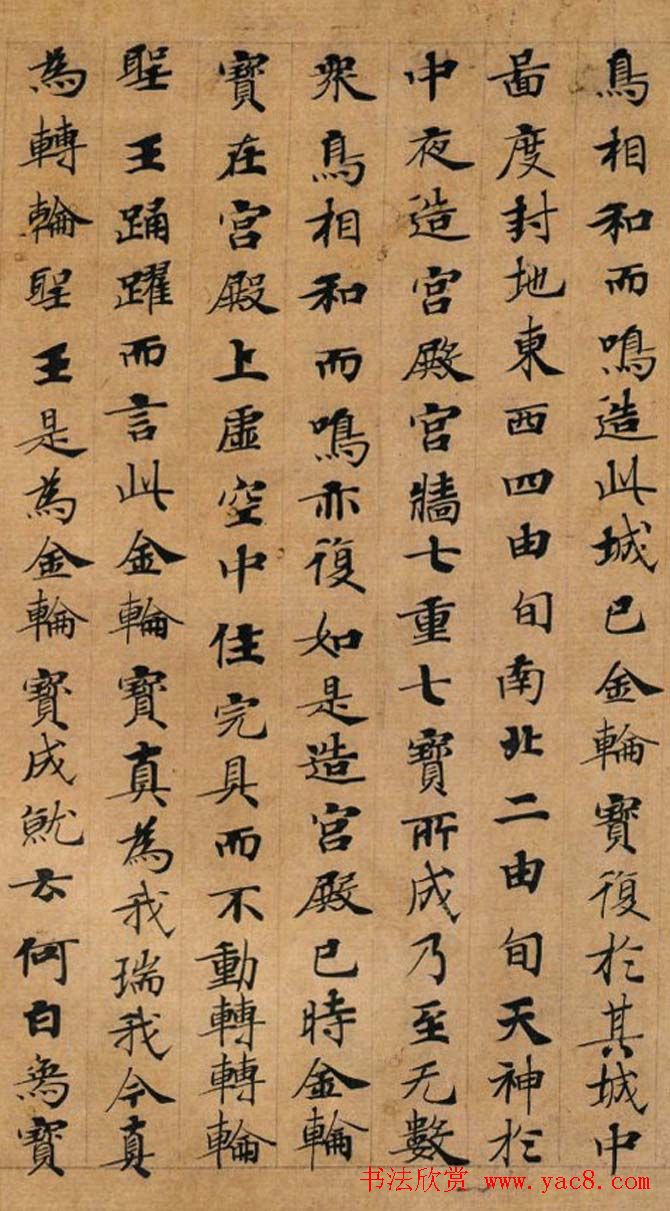 鳥相和而鳴造此城已金輪寶復於其城中
啚度封地東西四由旬南北二由旬天神於
中夜造宮殿宮牆七重七寶所成乃至无數
眾鳥相和而鳴亦復如是造宮殿已時金輪
寶在宮殿上虛空中住完具而不動轉轉輪
聖王踊躍而言此金輪寶真為我瑞我今真
為轉輪聖王是為金輪寶成就云何白象寶
书法欣赏 www.yac8.com